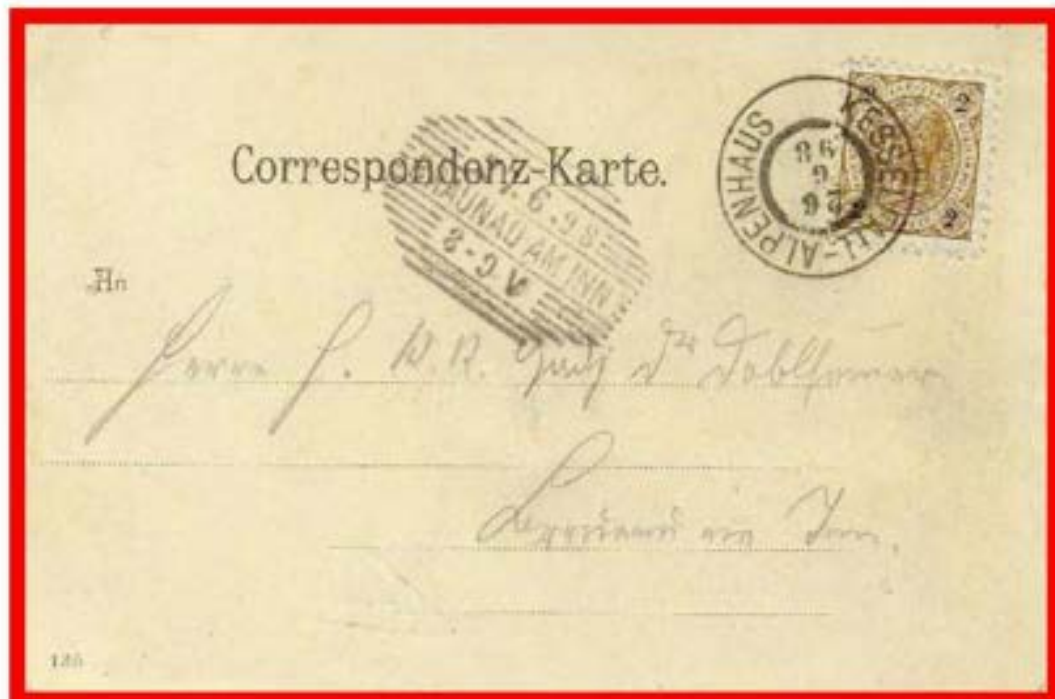 Correspondenz-Karte.
KESSELFALL-ALPENHAUS
98
6
2
2
2
.6.98
BRAUNAU AM INN
8-9 V
An
Herrn H. K. K.
Braunau am Inn.
135